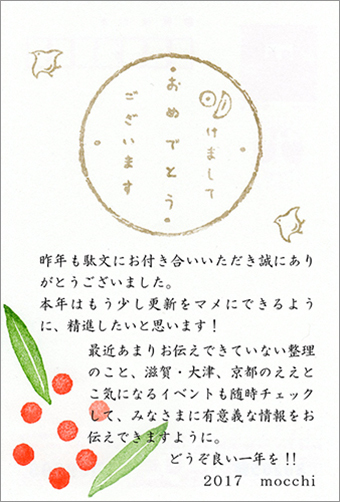 けまして
おめでとう
ございます
昨年も駄文にお付き合いいただき誠にあり
がとうございました。
本年はもう少し更新をマメにできるよう
に、精進したいと思います！
最近あまりお伝えできていない整理
のこと、滋賀・大津、京都のええと
こ気になるイベントも随時チェック
して、みなさまに有意義な情報をお
伝えできますように。
どうぞ良い一年を!!
2017 mocchi